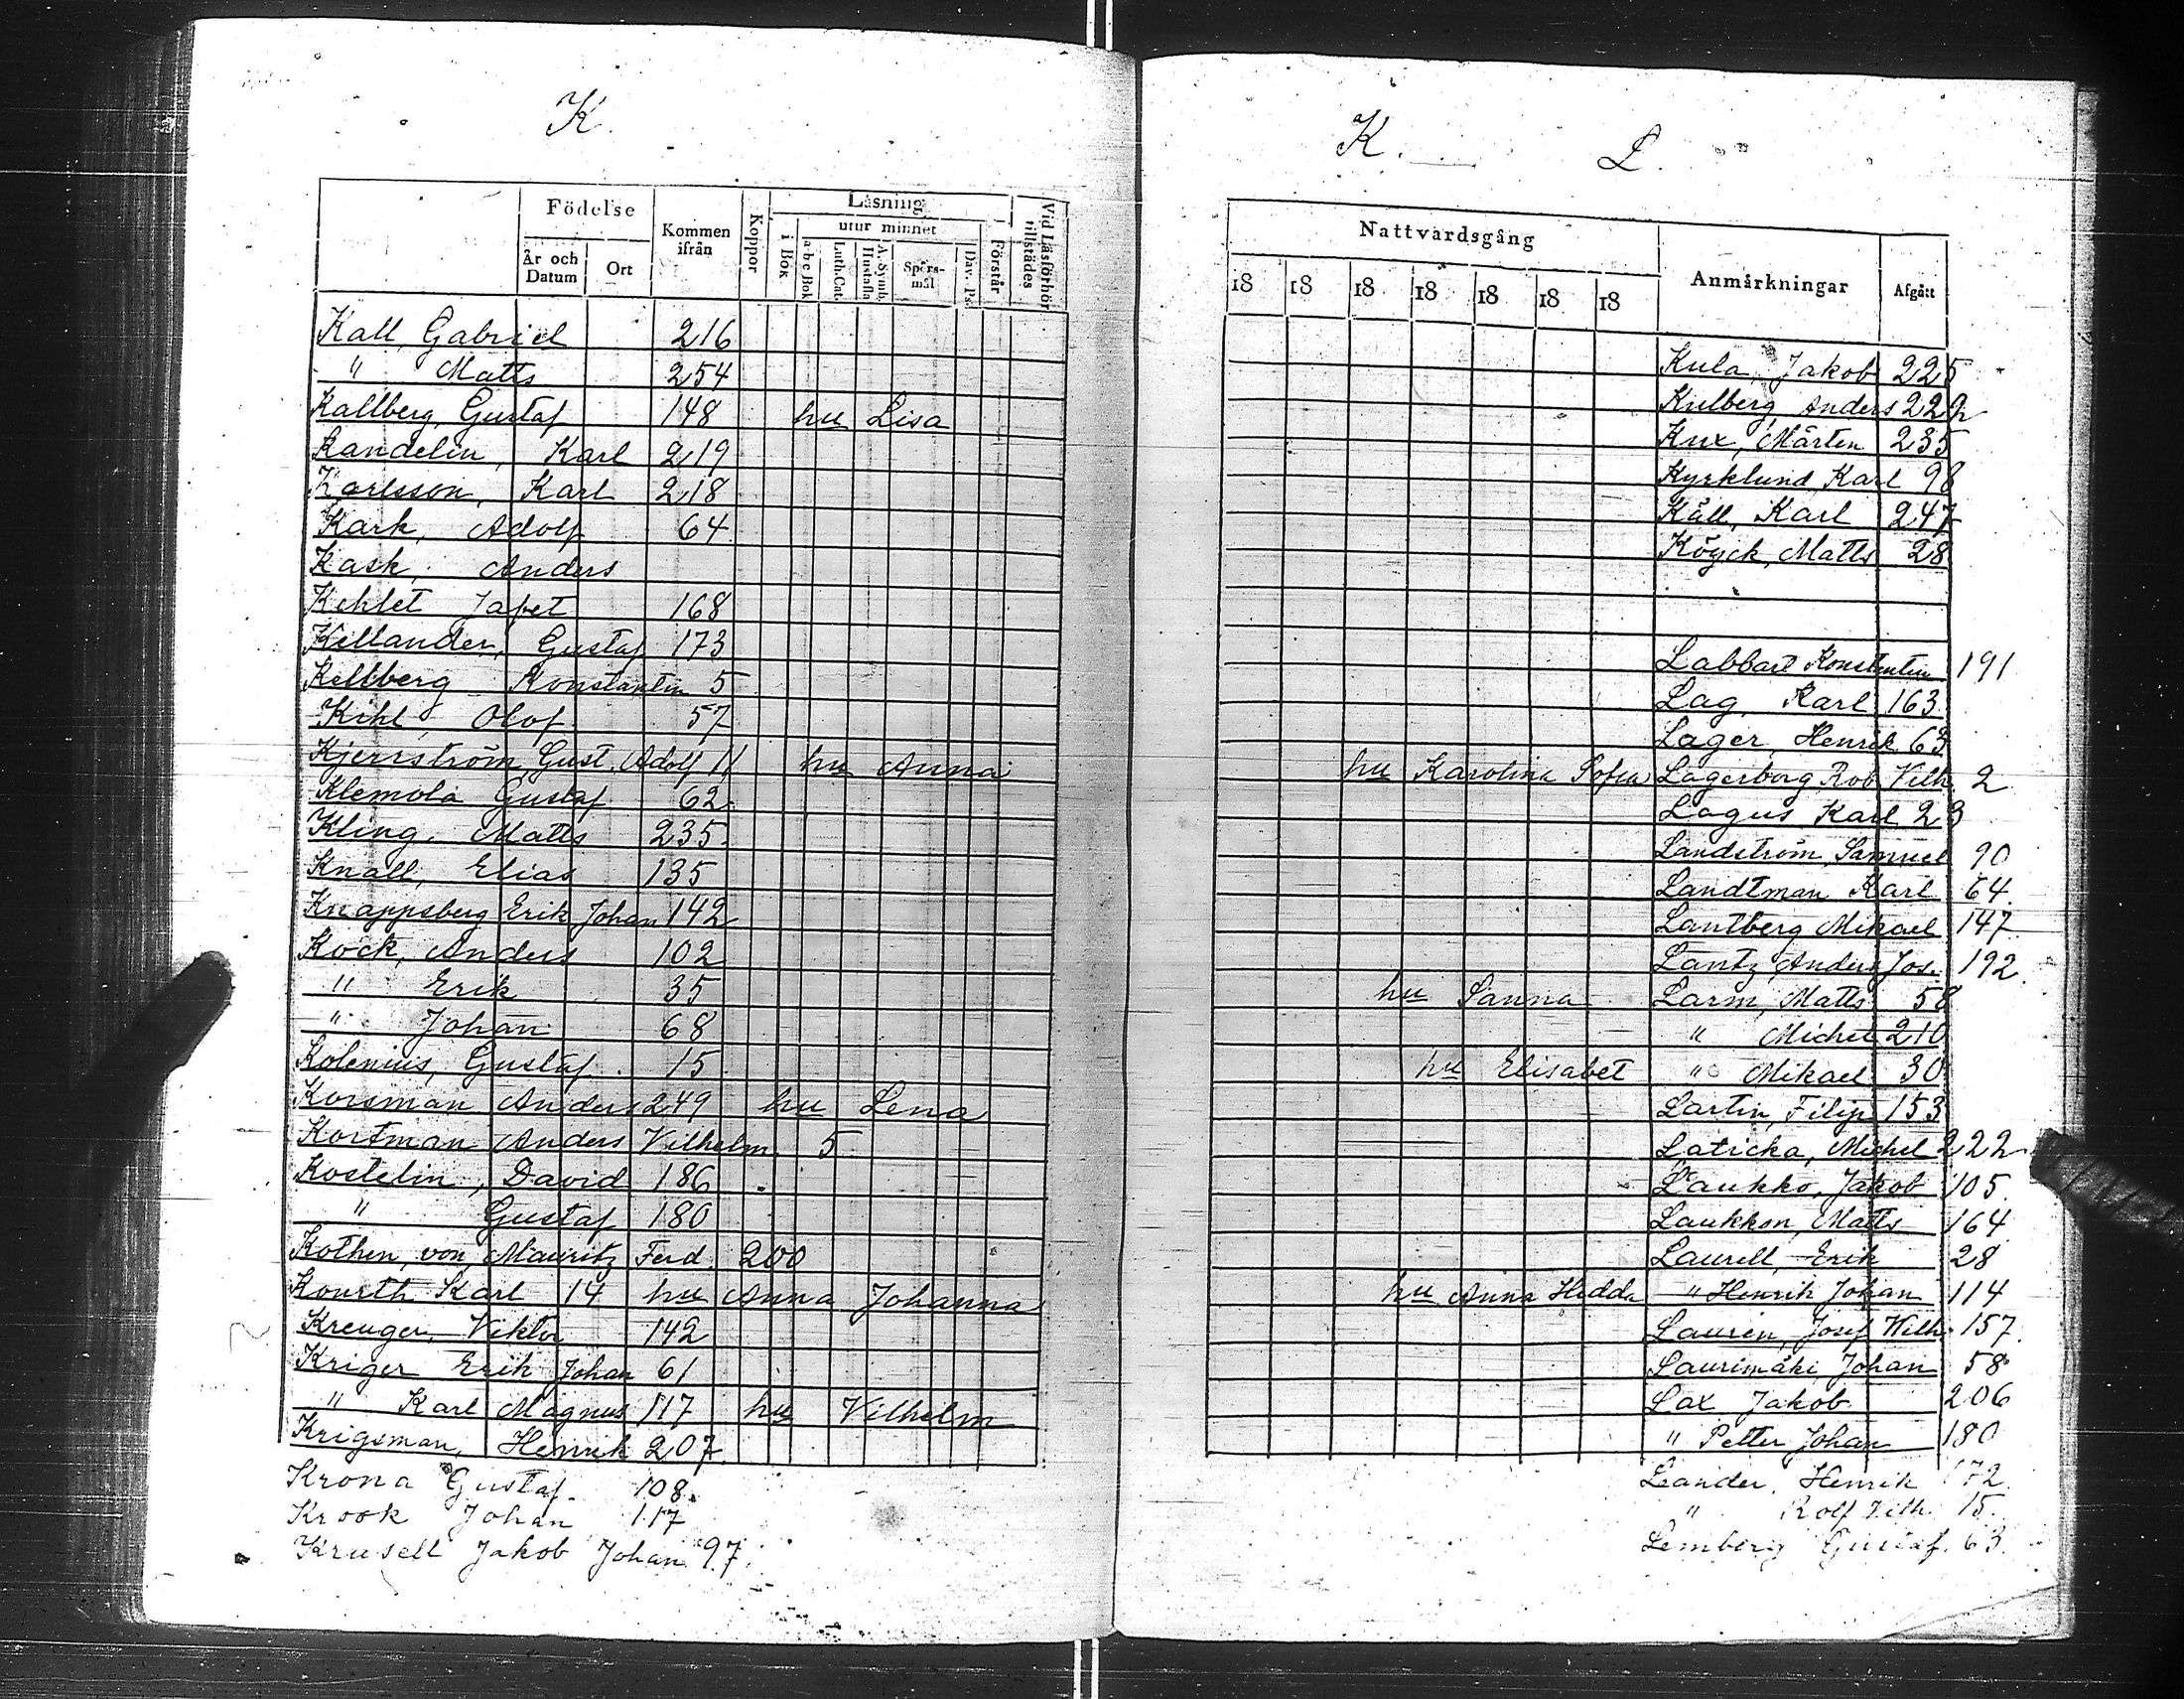 K.
Födelse
År och Datum
Ort
Kommen ifrån
Koppor
Läsning
i Bok
utur minnet
a b c Bok
Luth. Cat.
A. Symb. Hustafla
Spörs-mål
Dav. Ps.
Förstår
Vid Läsförhör tillstädes
Kall, Gabriel 216
" Matts 254
Kallberg, Gustaf 148 hu Lisa
Kandelin, Karl 219
Karlsson, Karl 218
Kark, Adolf 64
Kask, Anders
Kehlet Jafet 168
Killander, Gustaf 173
Kellberg Konstantin 5
Kihl, Olof 57
Kjerrström Gust. Adolf 11 hu Anna
Klemola Gustaf 62
Kling, Matts 235
Knall, Elias 135
Knappsberg Erik Johan 142
Kock, Anders 102
" Erik 35
" Johan 68
Kolenius, Gustaf 15
Korsman Anders 249 hu Lena
Kortman Anders Vilhelm 5
Kostelin, David 186
" Gustaf 180
Kothen, von, Mauritz Ferd. 200
Kourth Karl 14 hu Anna Johanna
Kreuger, Viktor 142
Kriger Erik Johan 61
" Karl Magnus 117 hu Vilhelm
Krigsman, Henrik 207
Krona Gustaf 108.
Krook Johan 117
Krusell Jakob Johan 97.
K. L.
Nattvardsgång
18 18 18 18 18 18 18
Anmärkningar
Afgått
Kula, Jakob 225
Kulberg, Anders 222
Kux, Mårten 235
Kyrklund, Karl 98
Käll, Karl 247
Köyck, Matts 28
Labbart Konstantin 191
Lag, Karl 163
Lager, Henrik 63
hu Karolina Sofia Lagerborg, Rob. Vilh. 2
Lagus Karl 23
Landström, Samuel 90
Landtman Karl 64
Lantberg Mikael 147
Lantz, Anders Jos. 192
hu Sanna Larm, Matts 58
" Michel 210
hu Elisabet " Mikael 30
Lartin, Filip 153
Laticka, Michel 222
Laukko, Jakob 105
Laukkon, Matts 164
Laurell, Erik 28
hu Anna Hedda " Henrik Johan 114
Lauren, Josef Wilh. 157.
Laurimäki Johan 58
Lax Jakob 206
" Petter Johan 180
Leander, Henrik 172
" Rolf Vilh. 15.
Lemberg Gustaf. 63.